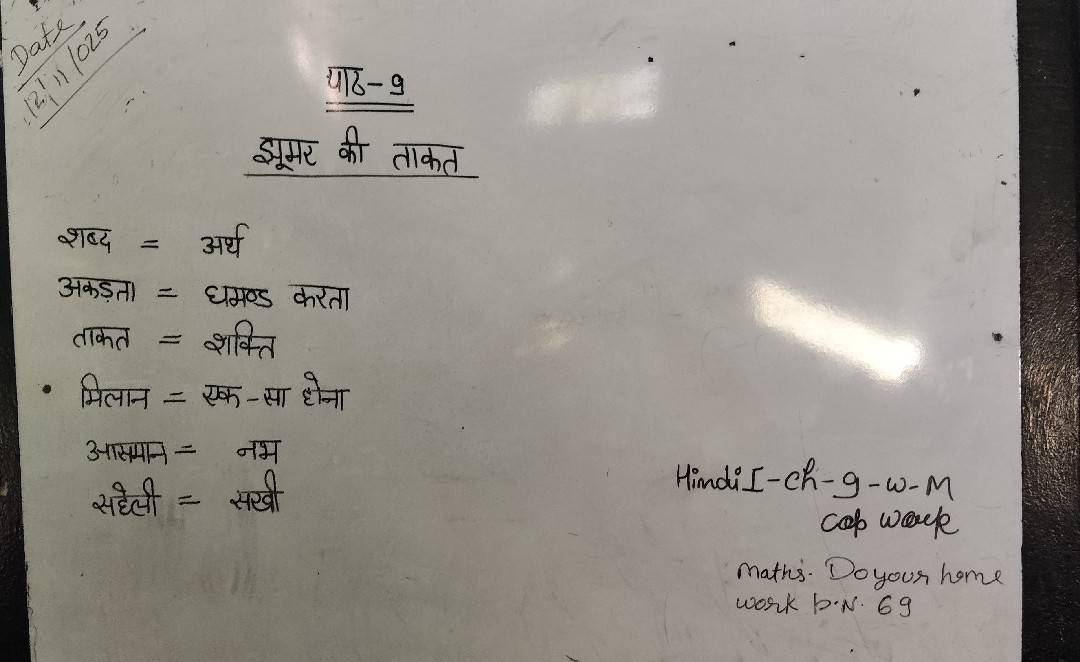 Date
12/11/025
पाठ-9
झूमर की ताकत
शब्द = अर्थ
अकड़ता = घमण्ड करता
ताकत = शक्ति
मिलान = एक-सा होना
आसमान = नभ
सहेली = सखी
Hindi I-ch-9-w-M
cop work
Maths. Do your home
work p.N. 69